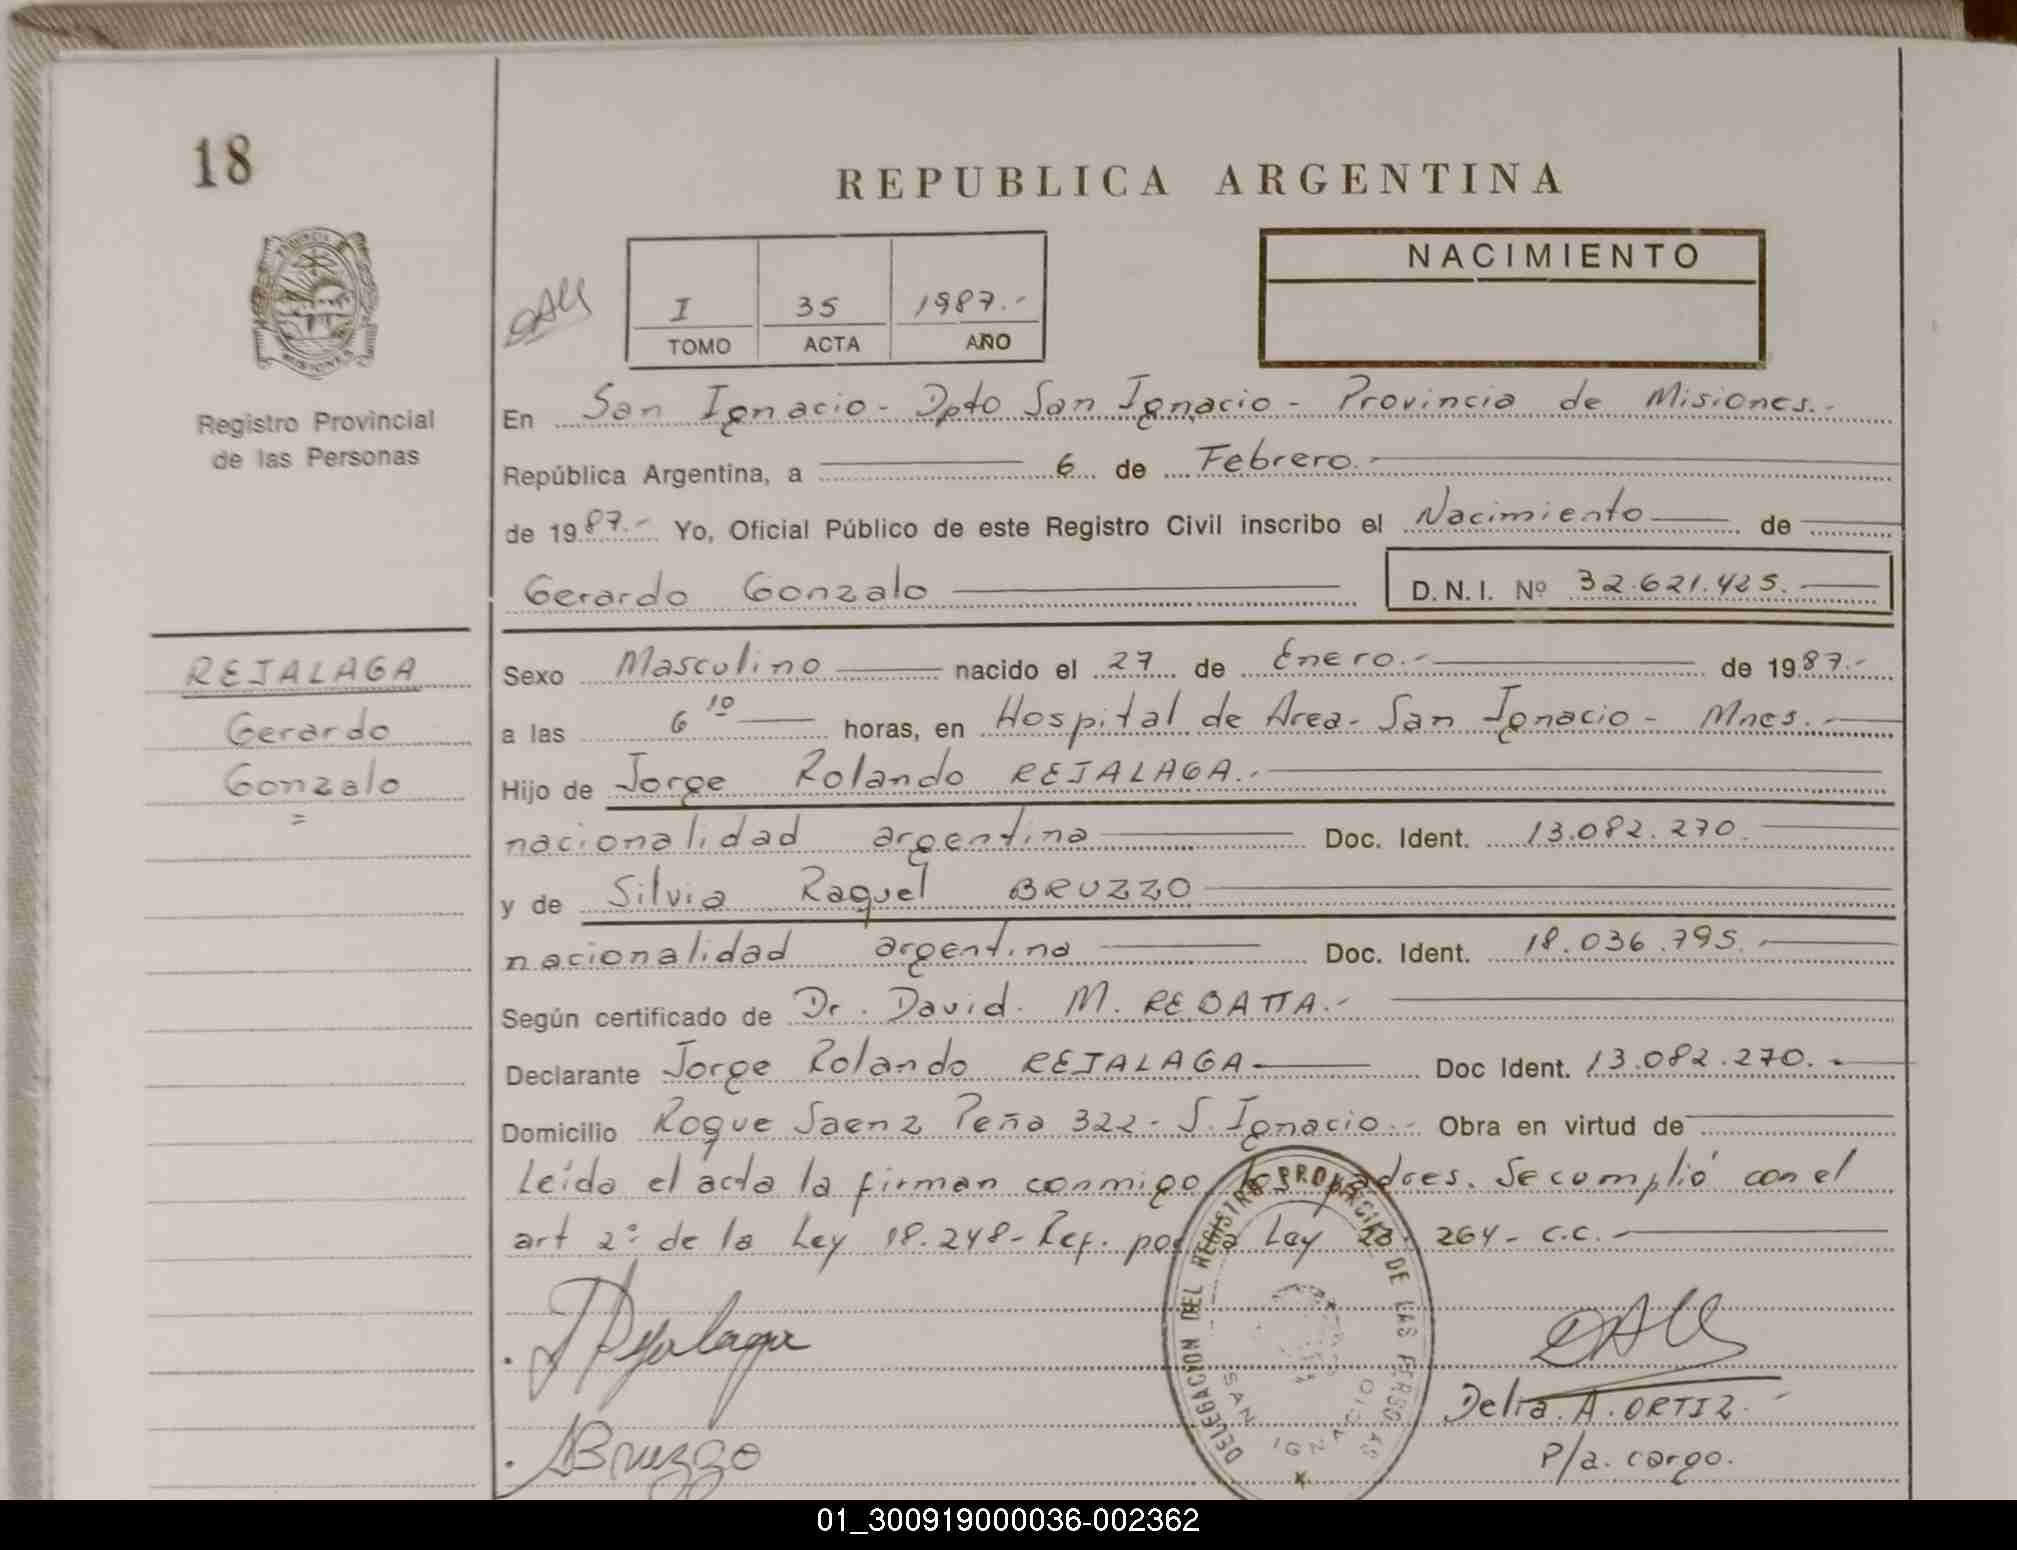 18
REPUBLICA ARGENTINA
NACIMIENTO
I 35 1987.-
TOMO ACTA AÑO
PROVINCIA
MISIONES
Registro Provincial
de las Personas
En San Ignacio - Dpto San Ignacio - Provincia de Misiones.-
República Argentina, a 6 de Febrero.-
de 1987.- Yo, Oficial Público de este Registro Civil inscribo el Nacimiento de
Gerardo Gonzalo D.N.I. Nº 32.621.425.
REJALAGA
Gerardo
Gonzalo
=
Sexo Masculino nacido el 27 de Enero.- de 1987.-
a las 6 10 horas, en Hospital de Area - San Ignacio - Mnes.-
Hijo de Jorge Rolando REJALAGA.-
nacionalidad argentina Doc. Ident. 13.082.270.
y de Silvia Raquel BRUZZO
nacionalidad argentina Doc. Ident. 18.036.795.-
Según certificado de Dr. David. M. .-
Declarante Jorge Rolando REJALAGA Doc Ident. 13.082.270.-
Domicilio Roque Saenz Peña 322 - S. Ignacio.- Obra en virtud de
Leída el acta la firman conmigo los padres. Se cumplió con el
art 2º de la Ley 18.248 - Ref. por la Ley 23.264 - C.C.-
DELEGACION DEL REGISTRO PROVINCIAL DE LAS PERSONAS
SAN IGNACIO
Rejalaga
Bruzzo
Delia A. ORTIZ.-
P/a. cargo.
01_300919000036-002362